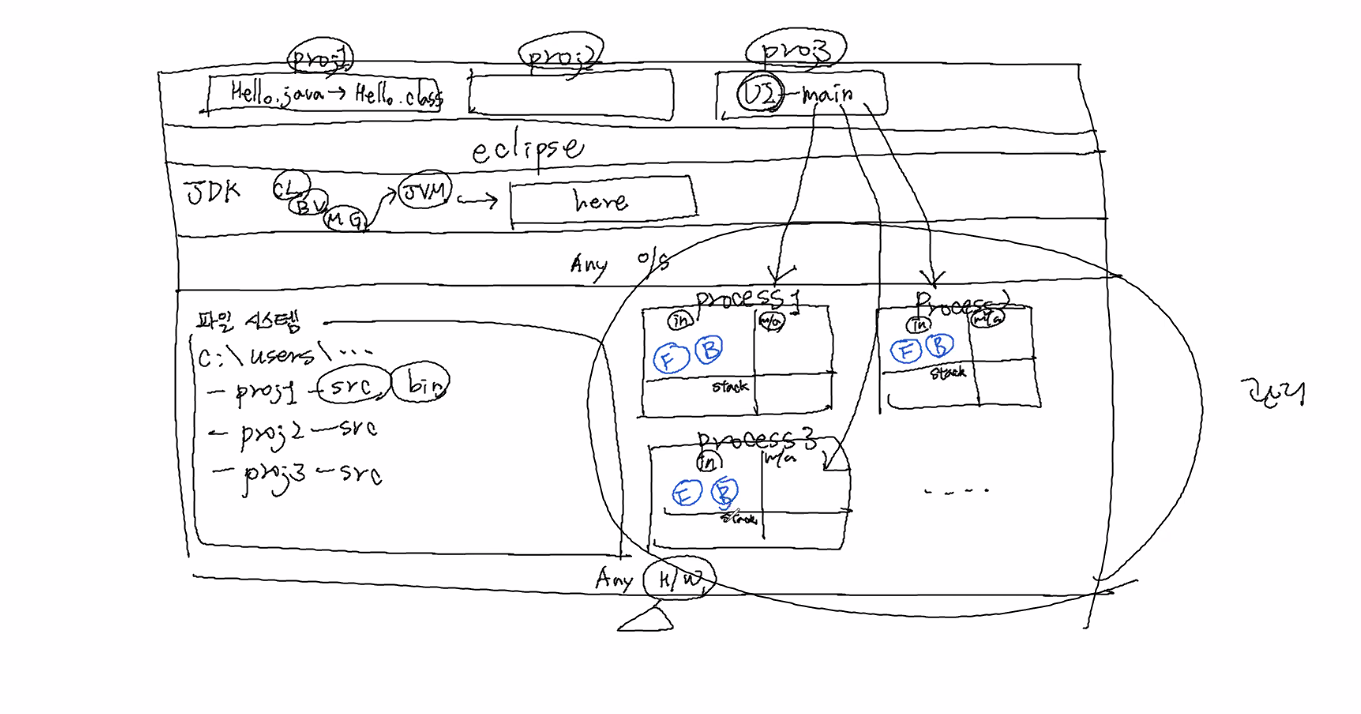 proj1 proj2 proj3
Hello.java → Hello.class
UI - main
eclipse
JDK CL BV MG JVM → here
Any O/S
파일 시스템
C:\users\...
- proj1 - src bin
- proj2 - src
- proj3 - src
process1
in m/a
F B
stack
process2
in m/a
F B
stack
process3
in m/a
F B
stack
....
관리
Any H/W